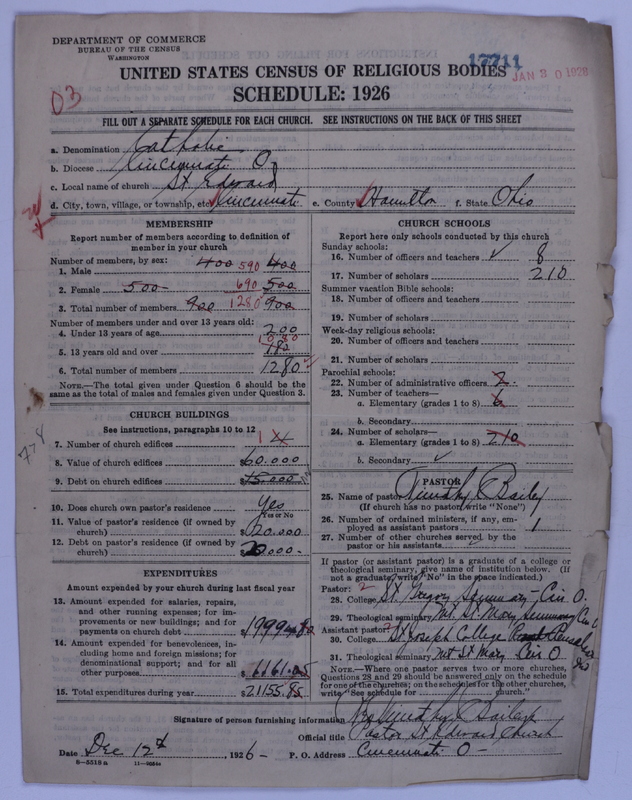 DEPARTMENT OF COMMERCE
BUREAU OF THE CENSUS
WASHINGTON
17711
JAN 30 1928
UNITED STATES CENSUS OF RELIGIOUS BODIES
SCHEDULE: 1926
03
FILL OUT A SEPARATE SCHEDULE FOR EACH CHURCH. SEE INSTRUCTIONS ON THE BACK OF THIS SHEET
a. Denomination Catholic
b. Diocese Cincinnati O
c. Local name of church St Edward
d. City, town, village, or township, etc Cincinnati e. County Hamilton f. State Ohio
MEMBERSHIP
Report number of members according to definition of
member in your church
Number of members, by sex:
1. Male 400 590 400
2. Female 500 690 500
3. Total number of members 900 1280 900
Number of members under and over 13 years old:
4. Under 13 years of age 200
5. 13 years old and over 1080
6. Total number of members 1280
NOTE.—The total given under Question 6 should be the
same as the total of males and females given under Question 3.
CHURCH BUILDINGS
See instructions, paragraphs 10 to 12
7. Number of church edifices 1
778
8. Value of church edifices $60.000
9. Debt on church edifices $15.000
10. Does church own pastor's residence Yes
Yes or No
11. Value of pastor's residence (if owned by
church) $20.000
12. Debt on pastor's residence (if owned by
church) $ 0.000-
EXPENDITURES
Amount expended by your church during last fiscal year
13. Amount expended for salaries, repairs,
and other running expenses; for im-
provements or new buildings; and for
payments on church debt $
14. Amount expended for benevolences, in-
cluding home and foreign missions; for
denominational support; and for all
other purposes $
15. Total expenditures during year $21155.85
CHURCH SCHOOLS
Report here only schools conducted by this church
Sunday schools:
16. Number of officers and teachers 8
17. Number of scholars 210
Summer vacation Bible schools:
18. Number of officers and teachers
19. Number of scholars
Week-day religious schools:
20. Number of officers and teachers
21. Number of scholars
Parochial schools:
22. Number of administrative officers 2
23. Number of teachers—
a. Elementary (grades 1 to 8) 6
b. Secondary
24. Number of scholars—
a. Elementary (grades 1 to 8) 210
b. Secondary
PASTOR
25. Name of pastor Timothy Bailey
(If church has no pastor, write "None")
26. Number of ordained ministers, if any, em-
ployed as assistant pastors 1
27. Number of other churches served by the
pastor or his assistants
If pastor (or assistant pastor) is a graduate of a college or
theological seminary, give name of institution below. (If
not a graduate, write "No" in the space indicated.)
Pastor: 2
28. College St Gregory Seminary - Cin O.
29. Theological seminary Mt. St Mary Seminary Cin O
Assistant pastor: 2
30. College St Joseph College Rensselaer
31. Theological seminary Mt St Mary Cin O
NOTE.—Where one pastor serves two or more churches,
Questions 28 and 29 should be answered only on the schedule
for one of the churches; on the schedules for the other churches,
write "See schedule for church."
Signature of person furnishing information Rev Timothy Bailey
Official title Pastor St Edward Church
Date Dec 12th, 1926- P. O. Address Cincinnati O-
8—5518 a